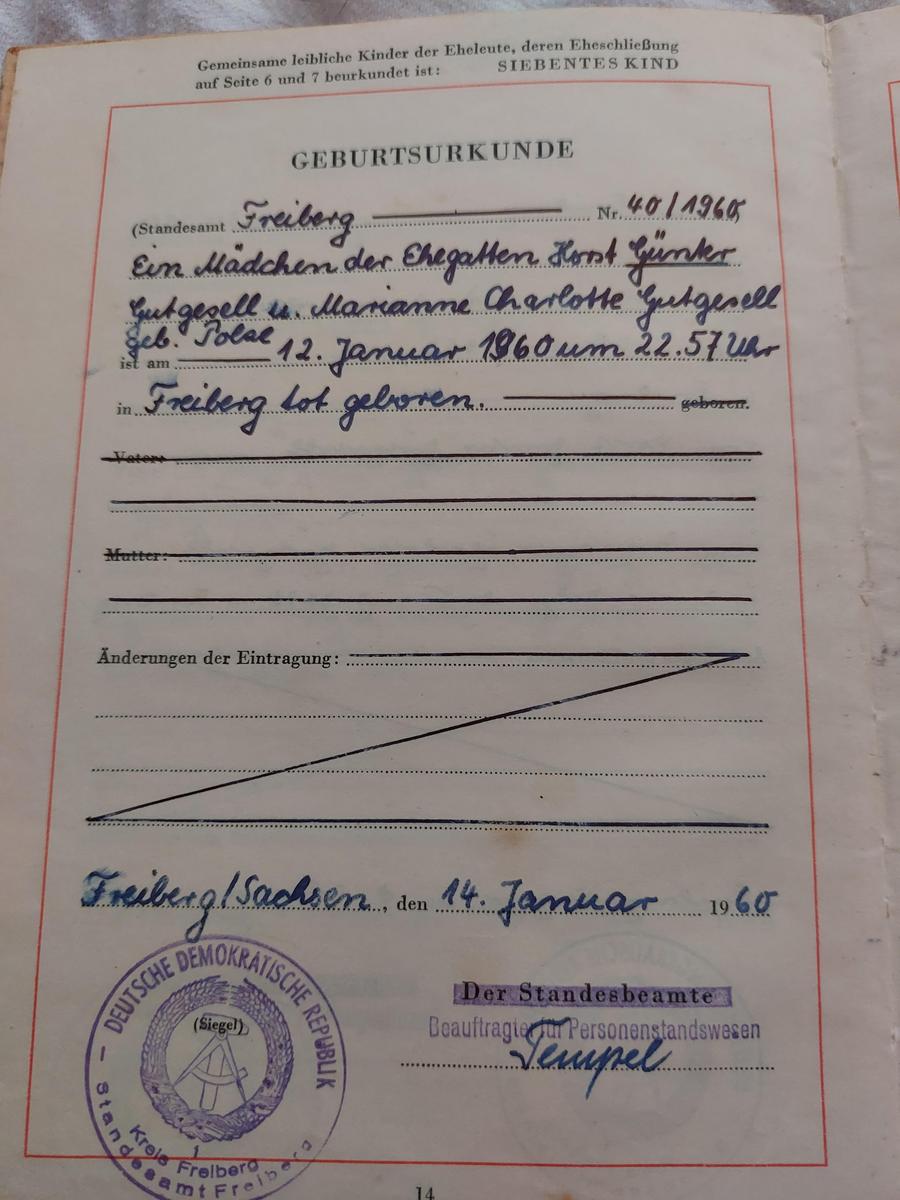 Gemeinsame leibliche Kinder der Eheleute, deren Eheschließung
auf Seite 6 und 7 beurkundet ist: SIEBENTES KIND
GEBURTSURKUNDE
(Standesamt Freiberg Nr. 40/1960)
Ein Mädchen der Ehegatten Horst Günter
Gutgesell u. Marianne Charlotte Gutgesell
geb. Polze
ist am 12. Januar 1960 um 22.57 Uhr
in Freiberg tot geboren. geboren.
Vater:
Mutter:
Änderungen der Eintragung:
Freiberg/Sachsen, den 14. Januar 1960
DEUTSCHE DEMOKRATISCHE REPUBLIK
(Siegel)
1
Kreis Freiberg
Standesamt Freiberg
Der Standesbeamte
Beauftragter für Personenstandswesen
Tempel
14